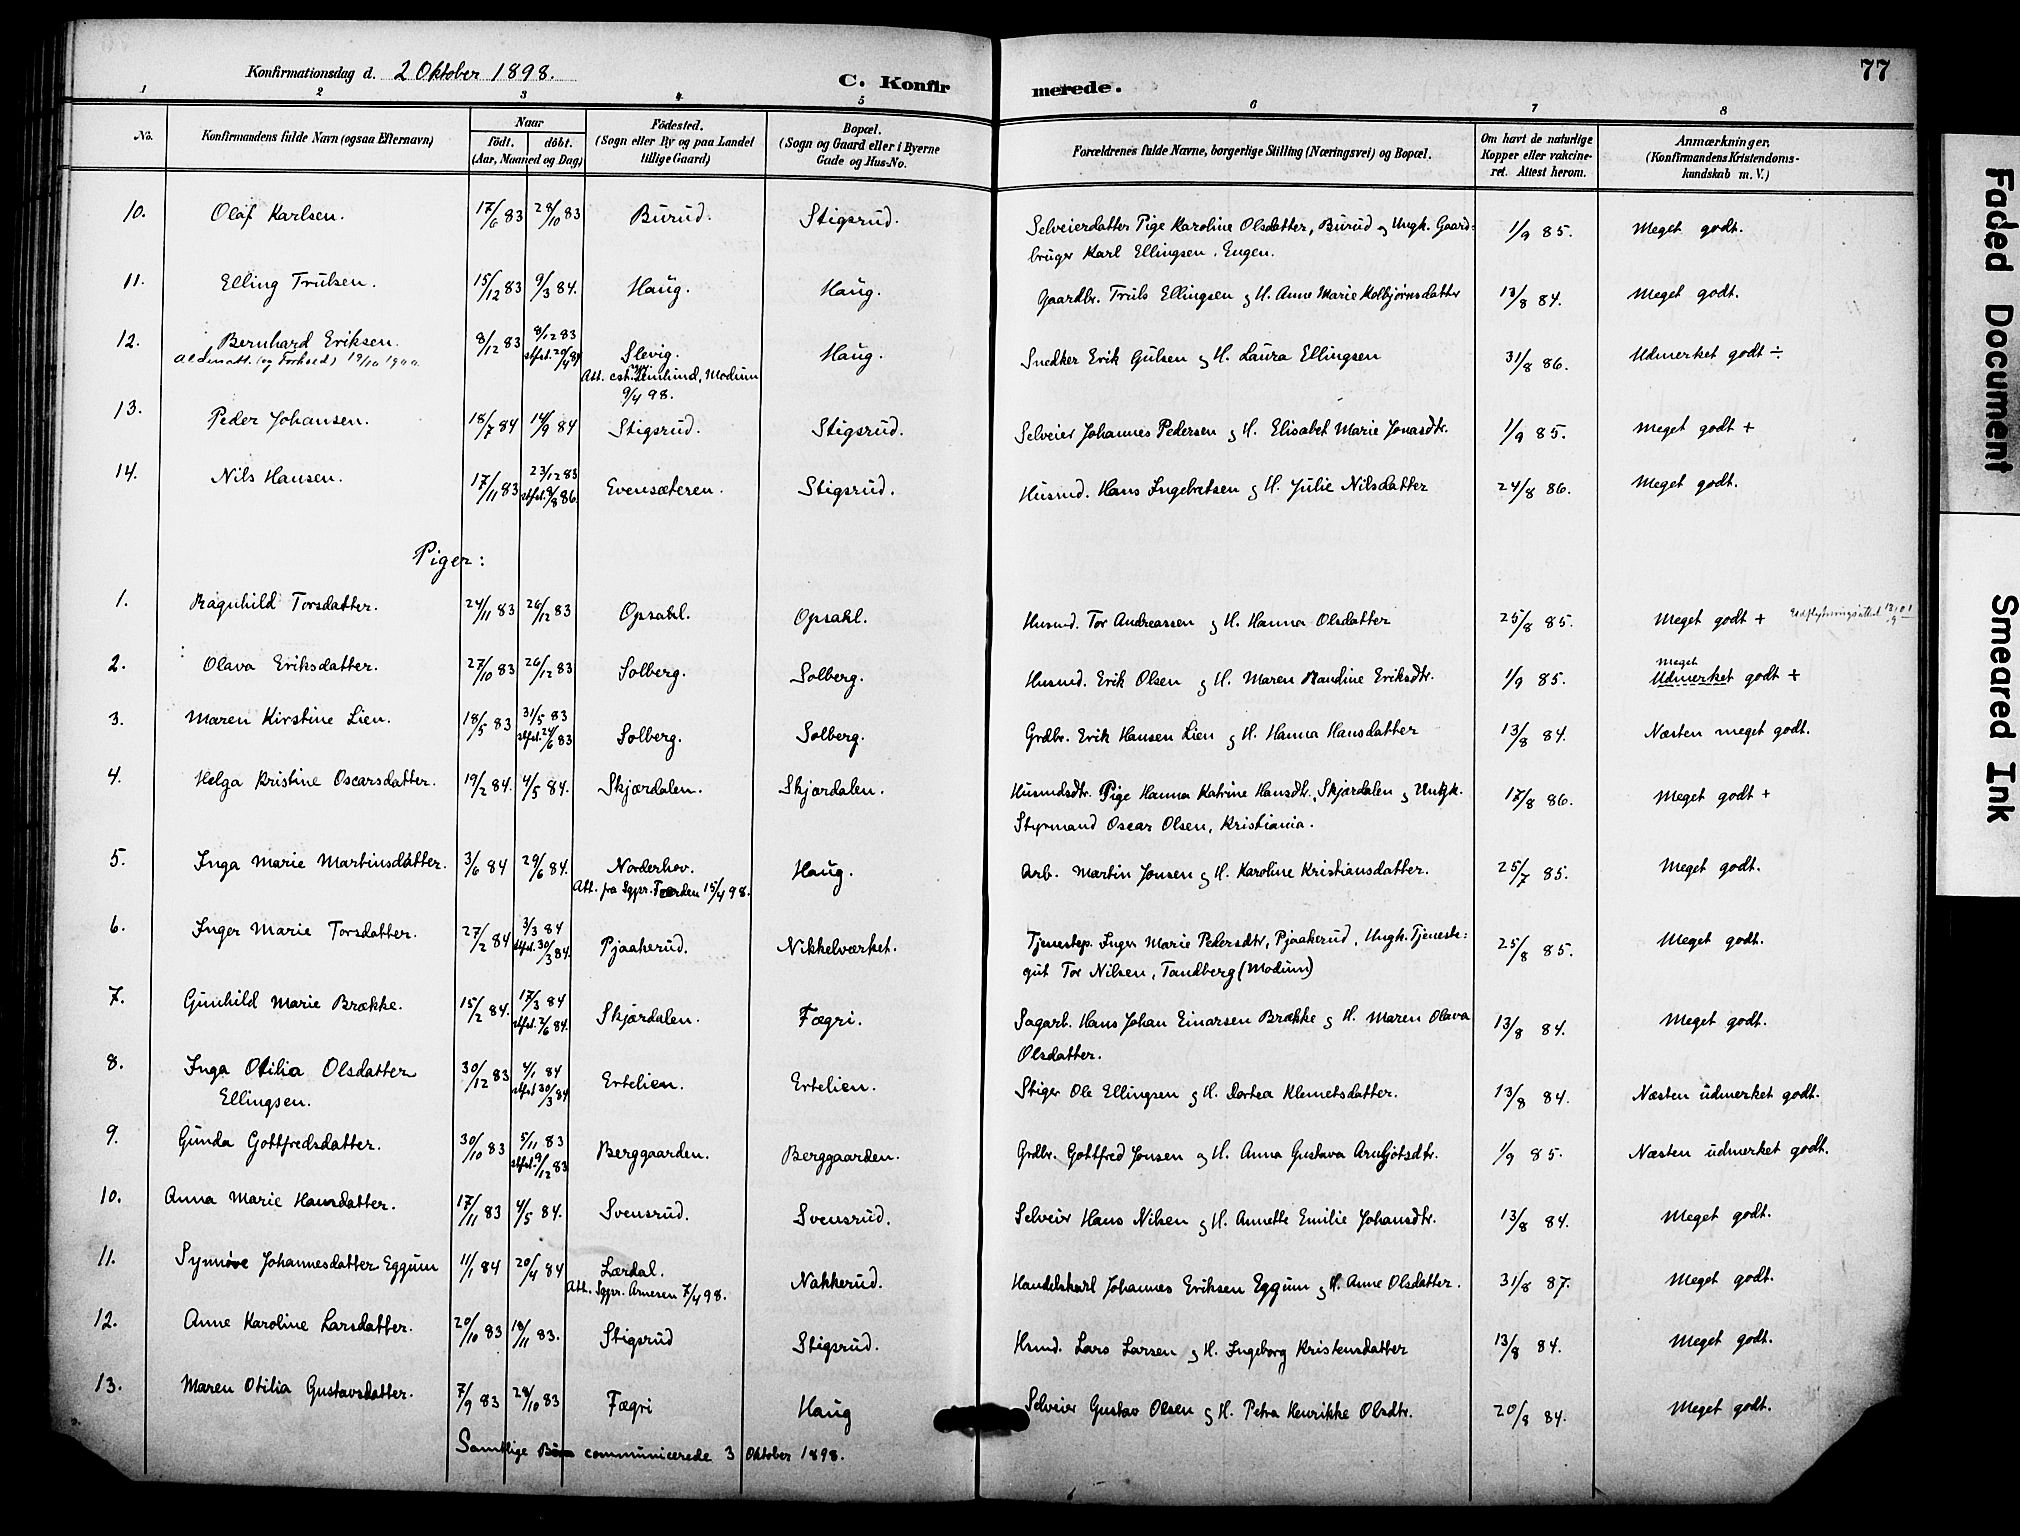 77
Konfirmationsdag d. 2 Oktober 1898.
C. Konfirmerede.
1 2 3 4 5 6 7 8
No.
Konfirmandens fulde Navn (ogsaa Efternavn)
Naar
födt. döbt.
(Aar, Maaned og Dag)
Födested.
(Sogn eller By og paa Landet
tillige Gaard)
Bopæl.
(Sogn og Gaard eller i Byerne
Gade og Hus-No.
Forældrenes fulde Navne, borgerlige Stilling (Næringsvei) og Bopæl.
Om havt de naturlige
Kopper eller vakcine-
ret. Attest herom.
Anmærkninger.
(Konfirmandens Kristendoms-
kundskab m. V.)
10. Olaf Karlsen. 17/6 83 28/10 83 Burud. Stigsrud. Selveierdatter Pige Karoline Olsdatter, Burud og Ungk. Gaard- 1/9 85. Meget godt.
bruger Karl Ellingsen, Engen.
11. Elling Trulsen. 15/12 83 9/3 84. Haug. Haug. Gaardbr. Truls Ellingsen og H. Anne Marie Kolbjørnsdatter 13/8 84. Meget godt.
12. Bernhard Eriksen. 8/12 83 8/12 83 Slevig. Haug. Snedker Erik Gulsen og H. Laura Ellingsen 31/8 86. Udmerket godt ÷
19/10 1900 stfst. 20/4 84 Modum
9/4 98.
13. Peder Johansen. 18/7 84 14/9 84 Stigsrud. Stigsrud. Selveier Johannes Pedersen og H. Elisabet Marie Jonasdtr. 1/9 85. Meget godt +
14. Nils Hansen. 17/11 83 23/12 83 Evensæteren. Stigsrud. Husmd. Hans Ingebretsen og H. Julie Nilsdatter 24/8 86. Meget godt.
stfst. 8/8 86.
Piger:
1. Ragnhild Torsdatter. 24/11 83 26/12 83 Opsahl. Opsahl. Husmd. Tor Andreassen og H. Hanna Olsdatter 25/8 85. Meget godt + Udflytningsattest
2. Olava Eriksdatter. 27/10 83 26/12 83 Solberg. Solberg. Husmd. Erik Olsen og H. Maren Randine Eriksdtr. 1/9 85. Meget
Udmerket godt +
3. Maren Kirstine Lien. 18/5 83 31/5 83 Solberg. Solberg. Grdbr. Erik Hansen Lien og H. Hanna Hansdatter 13/8 84. Næsten meget godt.
stfst. 24/6 83
4. Helga Kristine Oscarsdatter. 19/2 84. 4/5 84. Skjærdalen. Skjærdalen. Husmdsdtr. Pige Hanna Katrine Hansdtr, Skjærdalen og Ungk. 17/8 86. Meget godt +
Styrmand Oscar Olsen, Kristiania.
5. Inga Marie Martinsdatter. 3/6 84 29/6 84. Norderhov. Haug. Arb. Martin Jonsen og H. Karoline Kristiansdatter. 25/7 85. Meget godt.
Att. fra Sgpr. 15/4 98.
6. Inger Marie Torsdatter. 27/2 84 3/3 84 Pjaakerud. Nikkelværket. Tjenestep. Inger Marie Pedersdtr, Pjaakerud, Ungk. Tjeneste- 25/8 85. Meget godt.
stfst. 30/3 84. gut Tor Nilsen, Tandberg (Modum)
7. Gunhild Marie Brække. 15/2 84. 17/3 84 Skjærdalen. Fægri. Sagarb. Hans Johan Einarsen Brække og H. Maren Olava 13/8 84. Meget godt.
stfst. 2/6 84. Olsdatter.
8. Inga Otilia Olsdatter 30/12 83 4/1 84 Ertelien. Ertelien. Stiger Ole Ellingsen og H. Dortea Klemetsdatter. 13/8 84. Næsten udmerket godt.
Ellingsen. stfst. 30/3 84
9. Gunda Gottfredsdatter. 30/10 83 5/11 83 Berggaarden. Berggaarden. Grdbr. Gottfred Jonsen og H. Anna Gustava Arngjotsdtr. 1/9 85. Næsten udmerket godt.
stfst. 9/12 83
10. Anna Marie Hansdatter. 17/11 83 4/5 84. Svensrud. Svensrud. Selveier Hans Nilsen og H. Annette Emilie Johansdtr. 13/8 84. Meget godt.
11. Synnøve Johannesdatter Eggum 11/1 84 20/4 84 Lærdal. Nakkerud. Handelskarl Johannes Eriksen Eggum og H. Anne Olsdatter. 31/8 87. Meget godt.
Att. Sgpr. Arnesen 7/4 98.
12. Anne Karoline Larsdatter. 20/10 83 18/11 83. Stigsrud Stigsrud. Hsmd. Lars Larsen og H. Ingeborg Kristensdatter 13/8 84. Meget godt.
13. Maren Otilia Gustavsdatter. 7/9 83 28/10 83 Fægri Haug Selveier Gustav Olsen og H. Petra Henrikke Olsdtr. 20/8 84. Meget godt.
Samtlige Børn communicerede 3 Oktober 1898.
Faded Document
Smeared Ink